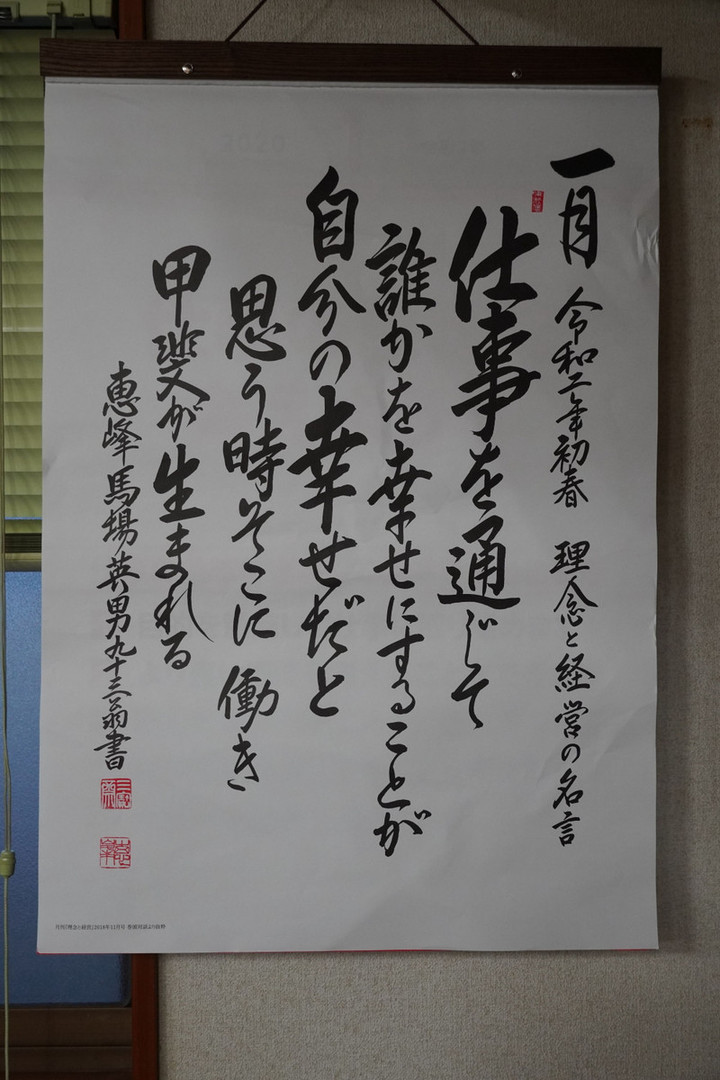 一月 令和二年初春 理念と経営の名言
仕事を通じて
誰かを幸せにすることが
自分の幸せだと
思う時そこに働き
甲斐が生まれる
恵峰馬場英男九十三翁書
2020